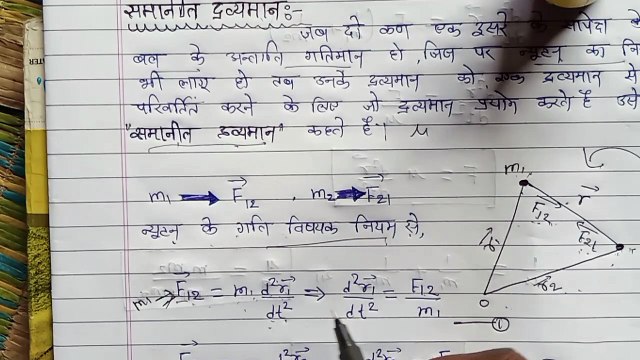 समानीत द्रव्यमान:-
जब दो कण एक दूसरे के सापेक्ष
बल के अन्तर्गत गतिमान हो, जिन पर न्यूटन का नि
भी लागू हो तब उनके द्रव्यमान को एक द्रव्यमान से
परिवर्तित करने के लिए जो द्रव्यमान प्रयोग करते है उसे
"समानीत द्रव्यमान" कहते है। μ
m₁ → F⃗₁₂ , m₂ → F⃗₂₁
न्यूटन के गति विषयक नियम से,
m₁ → F⃗₁₂ = m₁ d²r⃗₁/dt² ⇒ d²r⃗₁/dt² = F₁₂/m₁
—①
m₁
r⃗
F⃗₁₂
F⃗₂₁
O